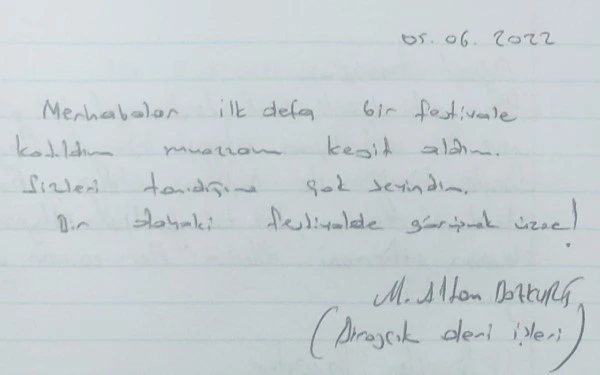 05.06.2022
Merhabalar ilk defa bir festivale
katıldım muazzam keyif aldım.
Sizleri tanıdığıma çok sevindim.
Bir dahaki festivalde görüşmek üzere!
M. Altan Bozkurt
(Birazcık deri işleri)